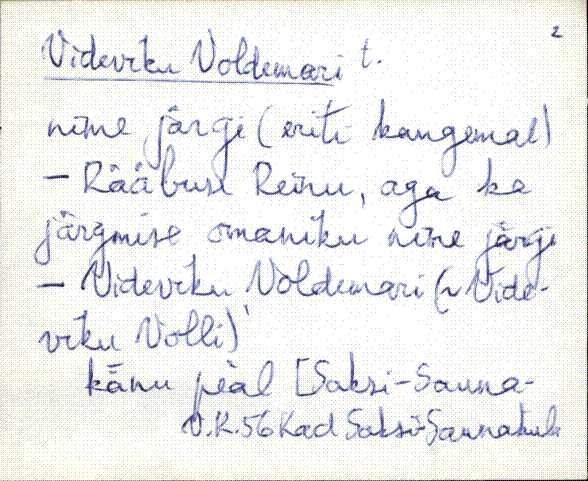 2
Videvku Voldemari t.
nime järgi (eriti kaugemal)
– Rääbuse Reinu, aga ka
järgmise omaniku nime järgi
– Videviku Voldemari (~ Vide-
viku Volli)
kǟnu pèàl [Saksi-Sauna-
V.K.56 Kad Saksi-Saunakülk